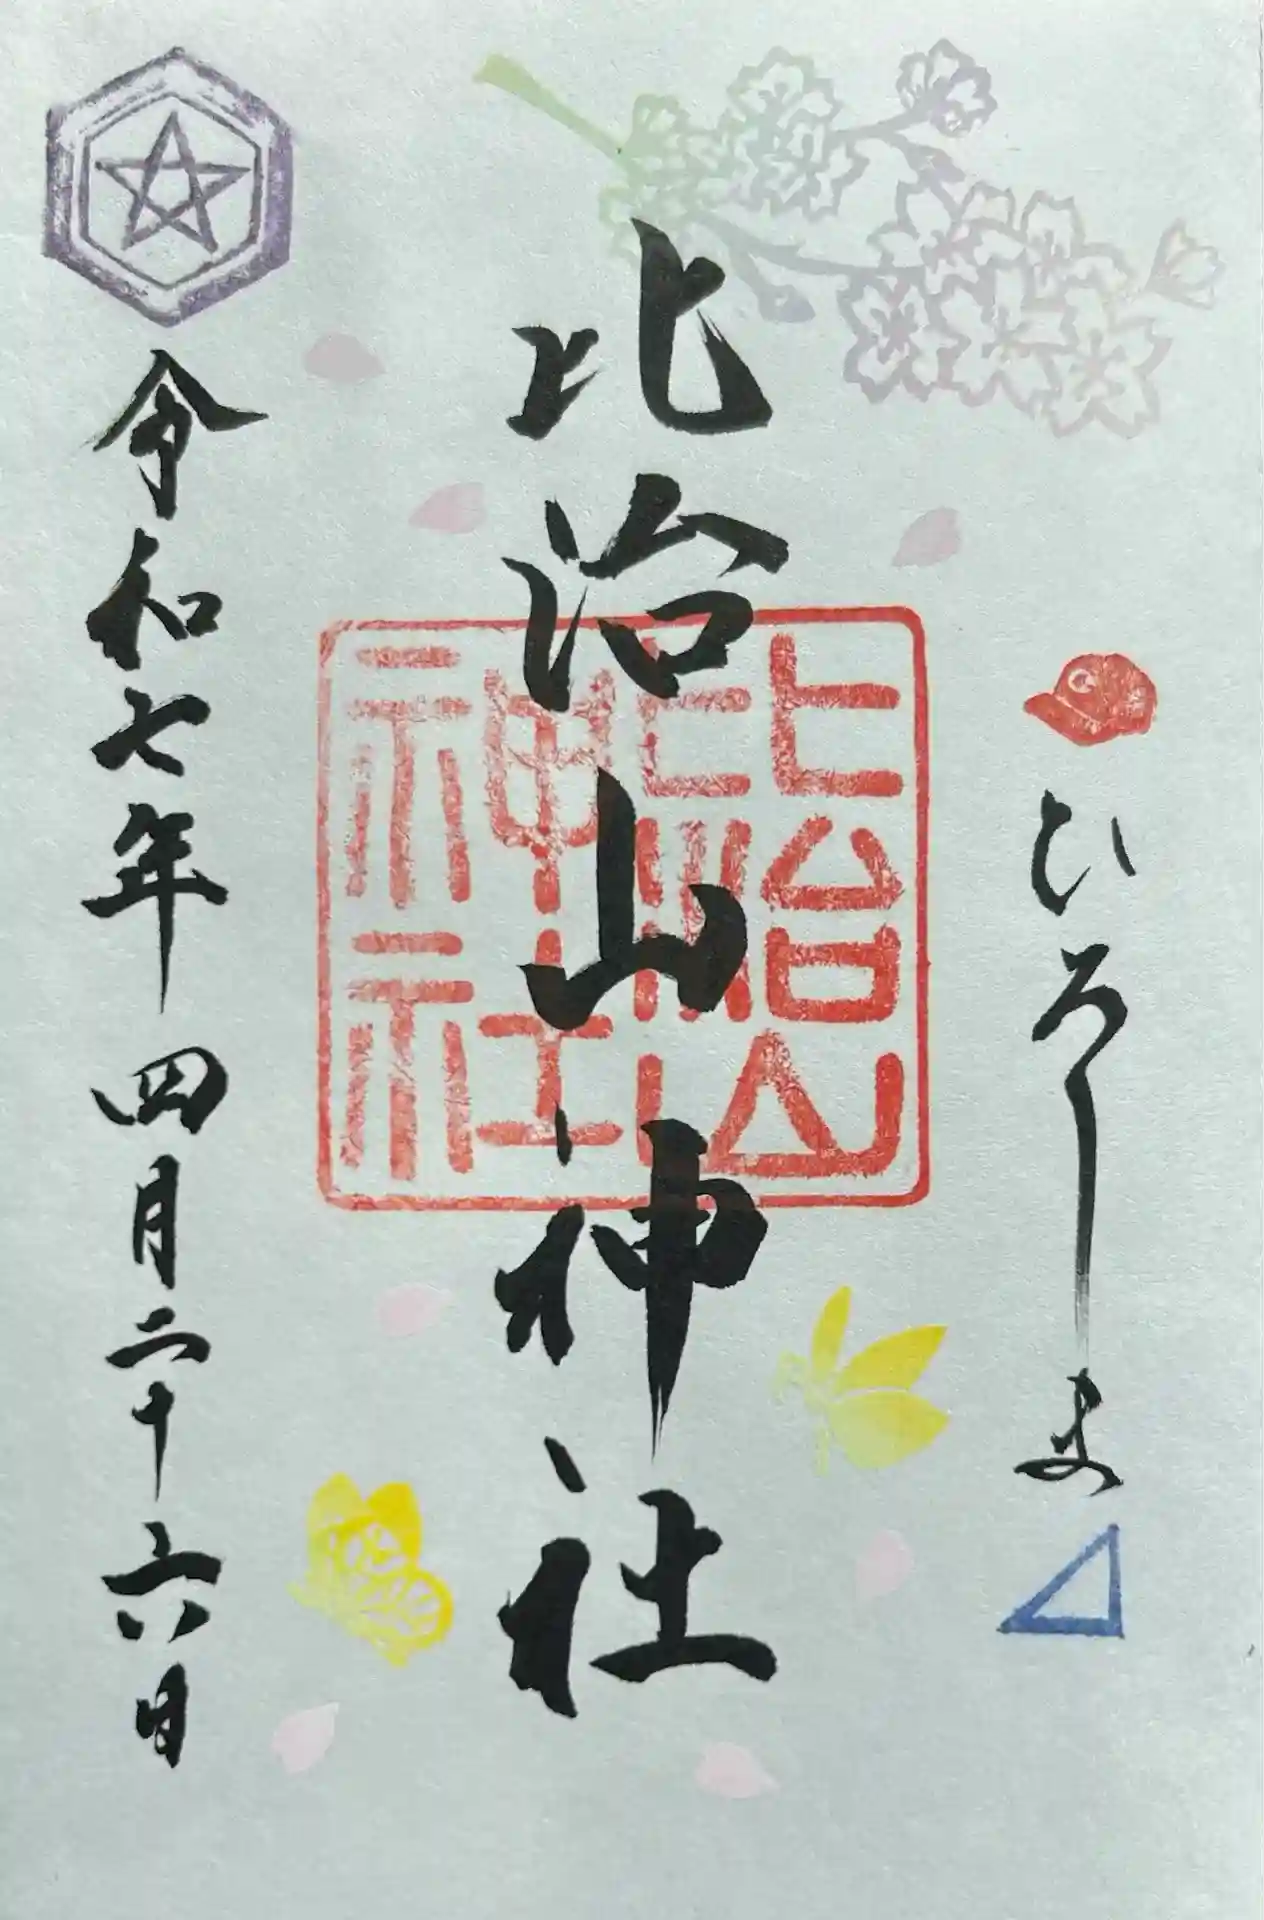 ひろしま
比治山神社
比治山神社
令和七年 四月二十六日
C